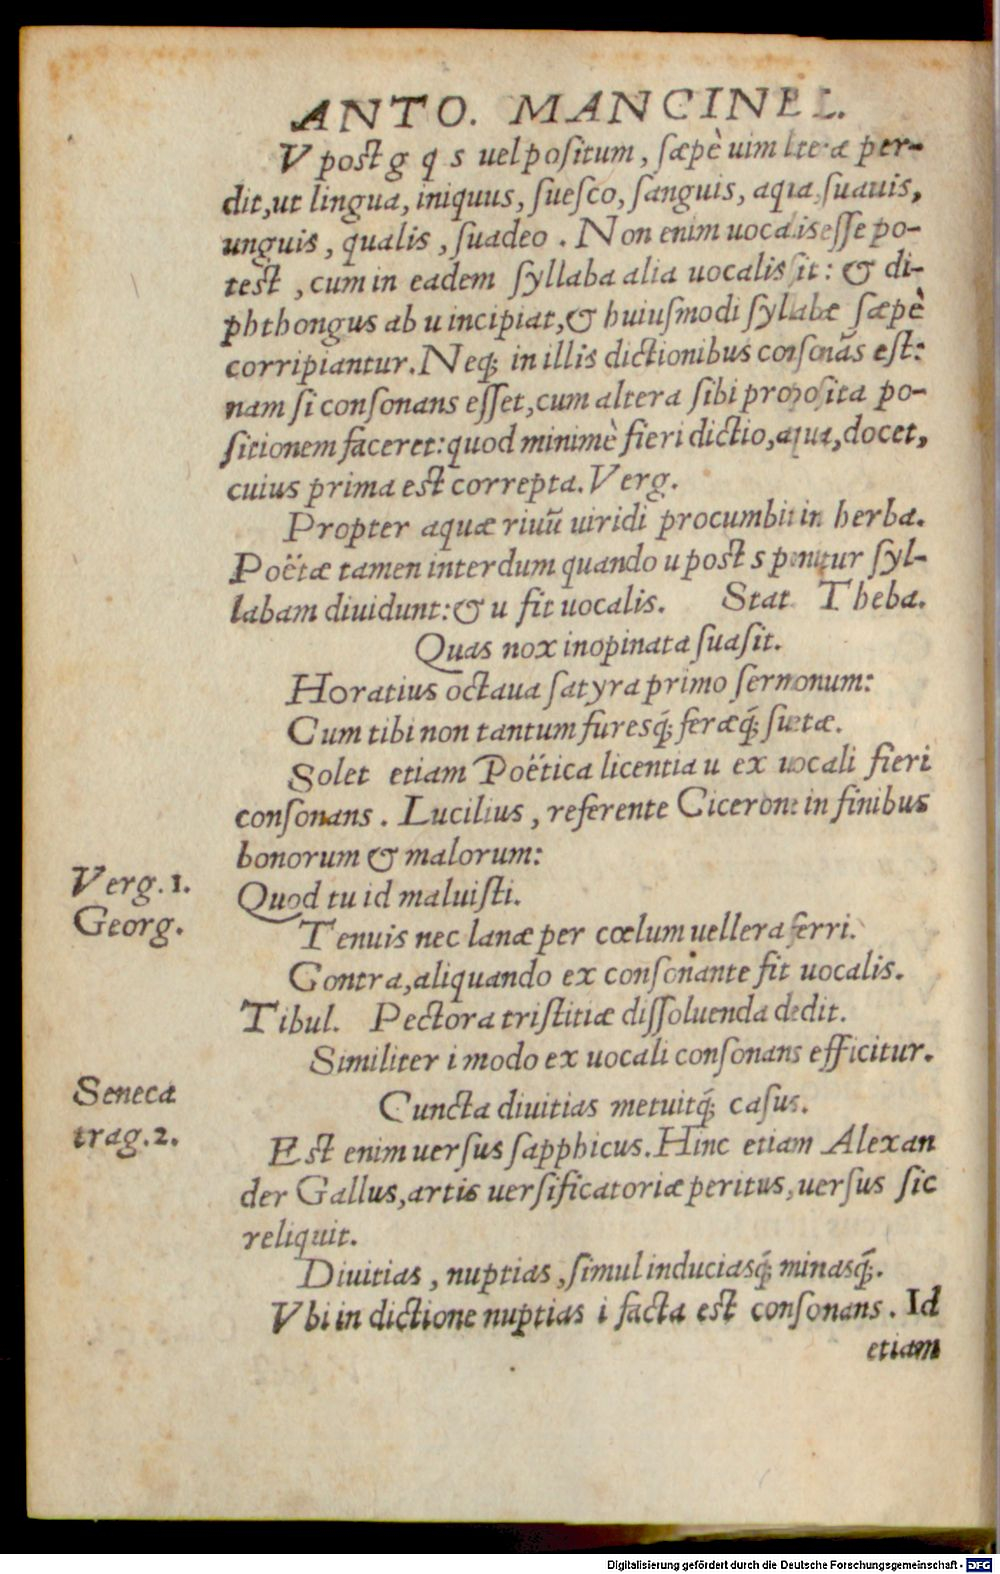 ANTO. MANCINEL.
V post g q s uel positum, sæpè uim literæ per-
dit, ut lingua, iniquus, suesco, sanguis, aqua, suauis,
unguis, qualis, suadeo. Non enim uocalis esse po-
test, cum in eadem syllaba alia uocalis sit: & di-
phthongus ab u incipiat, & huiusmodi syllabæ sæpè
corripiantur. Neq; in illis dictionibus consonãs est:
nam si consonans esset, cum altera sibi proposita po-
sitionem faceret: quod minimè fieri dictio, aqua, docet,
cuius prima est correpta. Verg.
Propter aquæ riuũ uiridi procumbit in herba.
Poëtæ tamen interdum quando u post s ponitur syl-
labam diuidunt: & u fit uocalis. Stat. Theba.
Quas nox inopinata suasit.
Horatius octaua satyra primo sermonum:
Cum tibi non tantum furesq́; feræq́; suetæ.
Solet etiam Poëtica licentia u ex uocali fieri
consonans. Lucilius, referente Cicerone in finibus
bonorum & malorum:
Verg. 1.
Georg.
Quod tu id maluisti.
Tenuis nec lanæ per cœlum uellera ferri.
Contra, aliquando ex consonante fit uocalis.
Tibul. Pectora tristitiæ dissoluenda dedit.
Similiter i modo ex uocali consonans efficitur.
Seneca
trag. 2.
Cuncta diuitias metuitq́; casus.
Est enim uersus sapphicus. Hinc etiam Alexan
der Gallus, artis uersificatoriæ peritus, uersus sic
reliquit.
Diuitias, nuptias, simul induciasq́; minasq́;.
Vbi in dictione nuptias i facta est consonans. Id
etiam
Digitalisierung gefördert durch die Deutsche Forschungsgemeinschaft - DFG